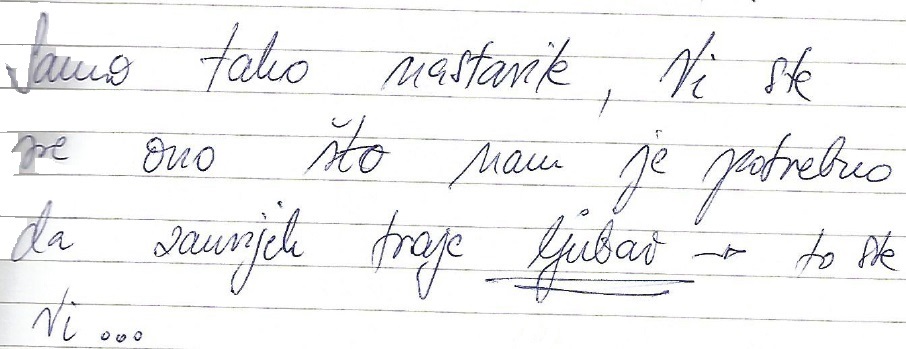 Samo tako nastavite, Vi ste
sve ono što nam je potrebno
da zauvijek traje ljubav → to ste
Vi...